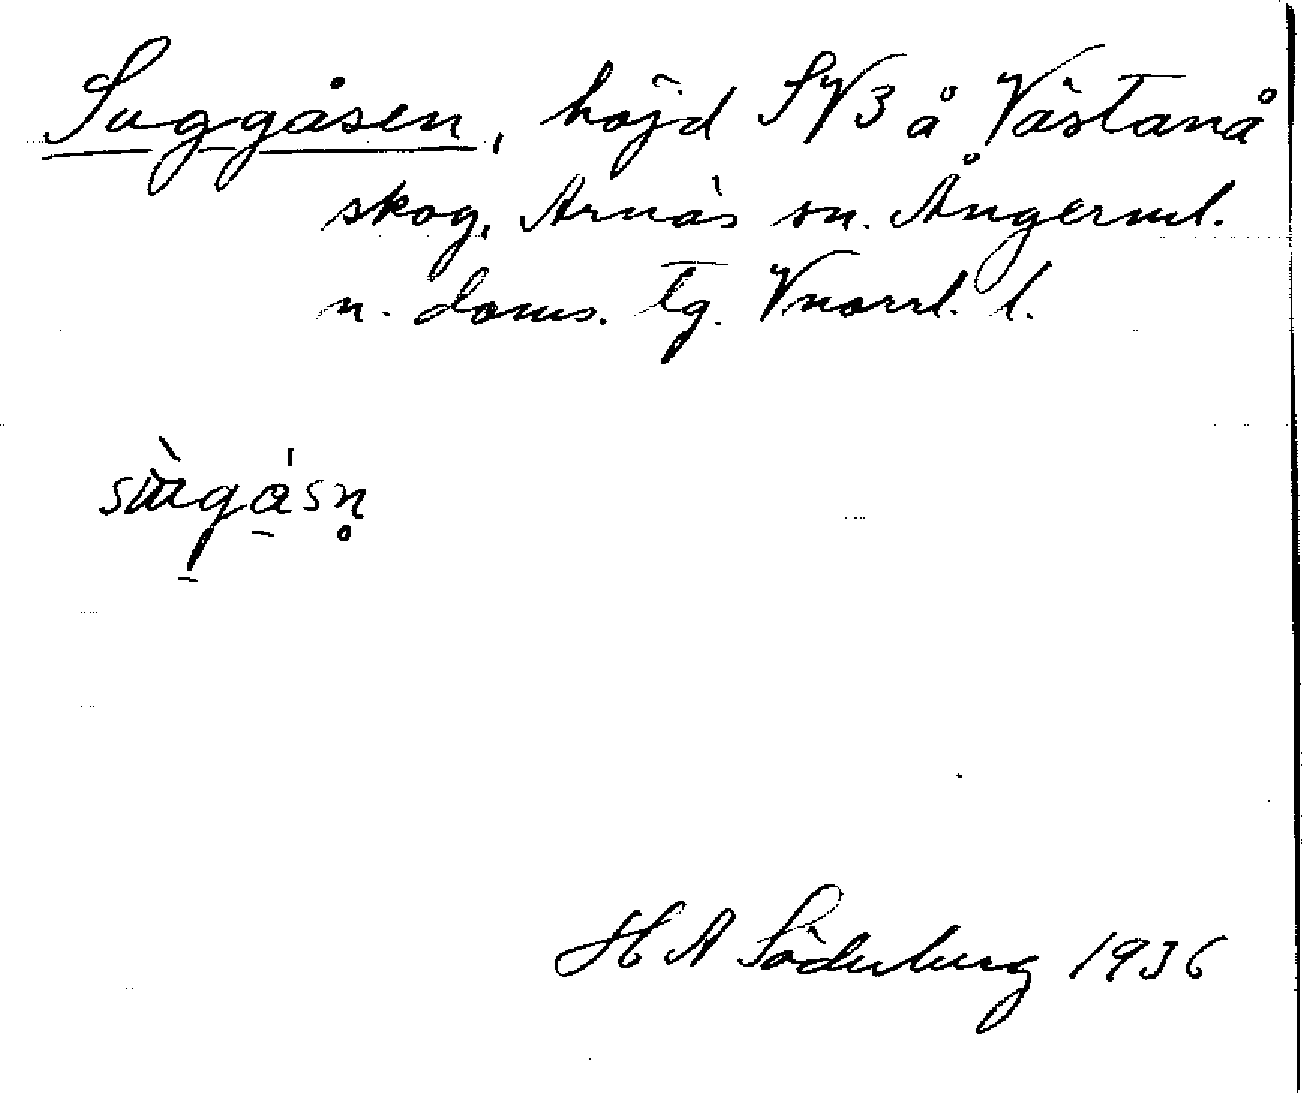 Suggåsen, höjd SV3 å Västanå
skog, Arnäs sn. Ångerml.
n. doms. tg. Vnorrl. l.
H A Söderberg 1936